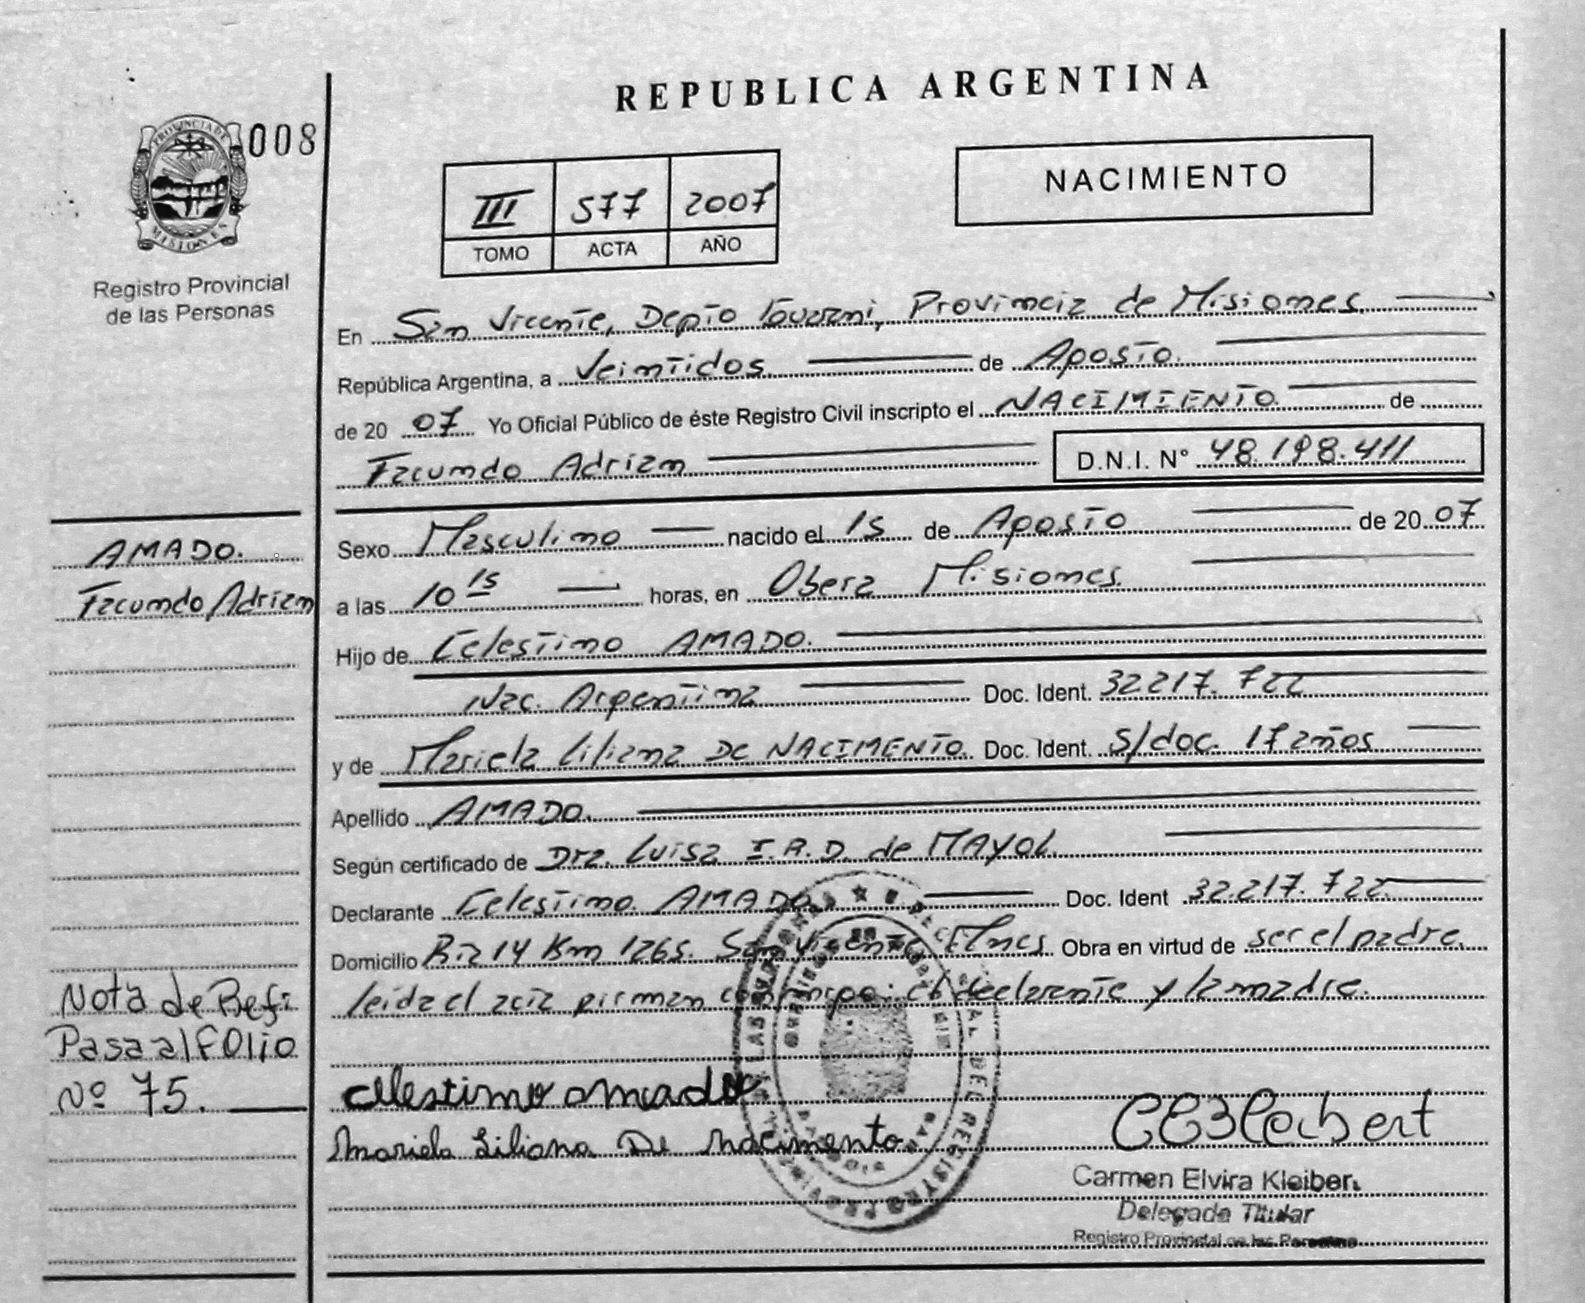 REPUBLICA ARGENTINA
PROVINCIA DE
MISIONES
008
Registro Provincial
de las Personas
III 577 2007
TOMO ACTA AÑO
NACIMIENTO
En San Vicente, Depto Guarani, Provincia de Misiones
República Argentina, a Veintidos de Agosto
de 20 07 Yo Oficial Público de éste Registro Civil inscripto el NACIMIENTO de
Facundo Adrian D.N.I. N° 48.198.411
AMADO.
Facundo Adrian
Sexo Masculino nacido el 15 de Agosto de 20 07
a las 10 15 horas, en Obera Misiones
Hijo de Celestino AMADO.
Nac. Argentina Doc. Ident. 32217.722
y de Mariela Liliana DE NACIMENTO. Doc. Ident. S/doc. 17 años
Apellido AMADO.
Según certificado de Dra. Luisa I.R.D. de MAYOL
Declarante Celestino AMADO. Doc. Ident 32.217.722
Domicilio 14 Km 1265. San Vicente Mnes. Obra en virtud de ser el padre.
leida el acta firman el declarante y la madre.
Nota de Ref:
Pasa al Folio
Nº 75.
celestino amado
Mariela Liliana De Nacimento
Carmen Elvira Kleibert
Delegada Titular
Registro Provincial de las Personas